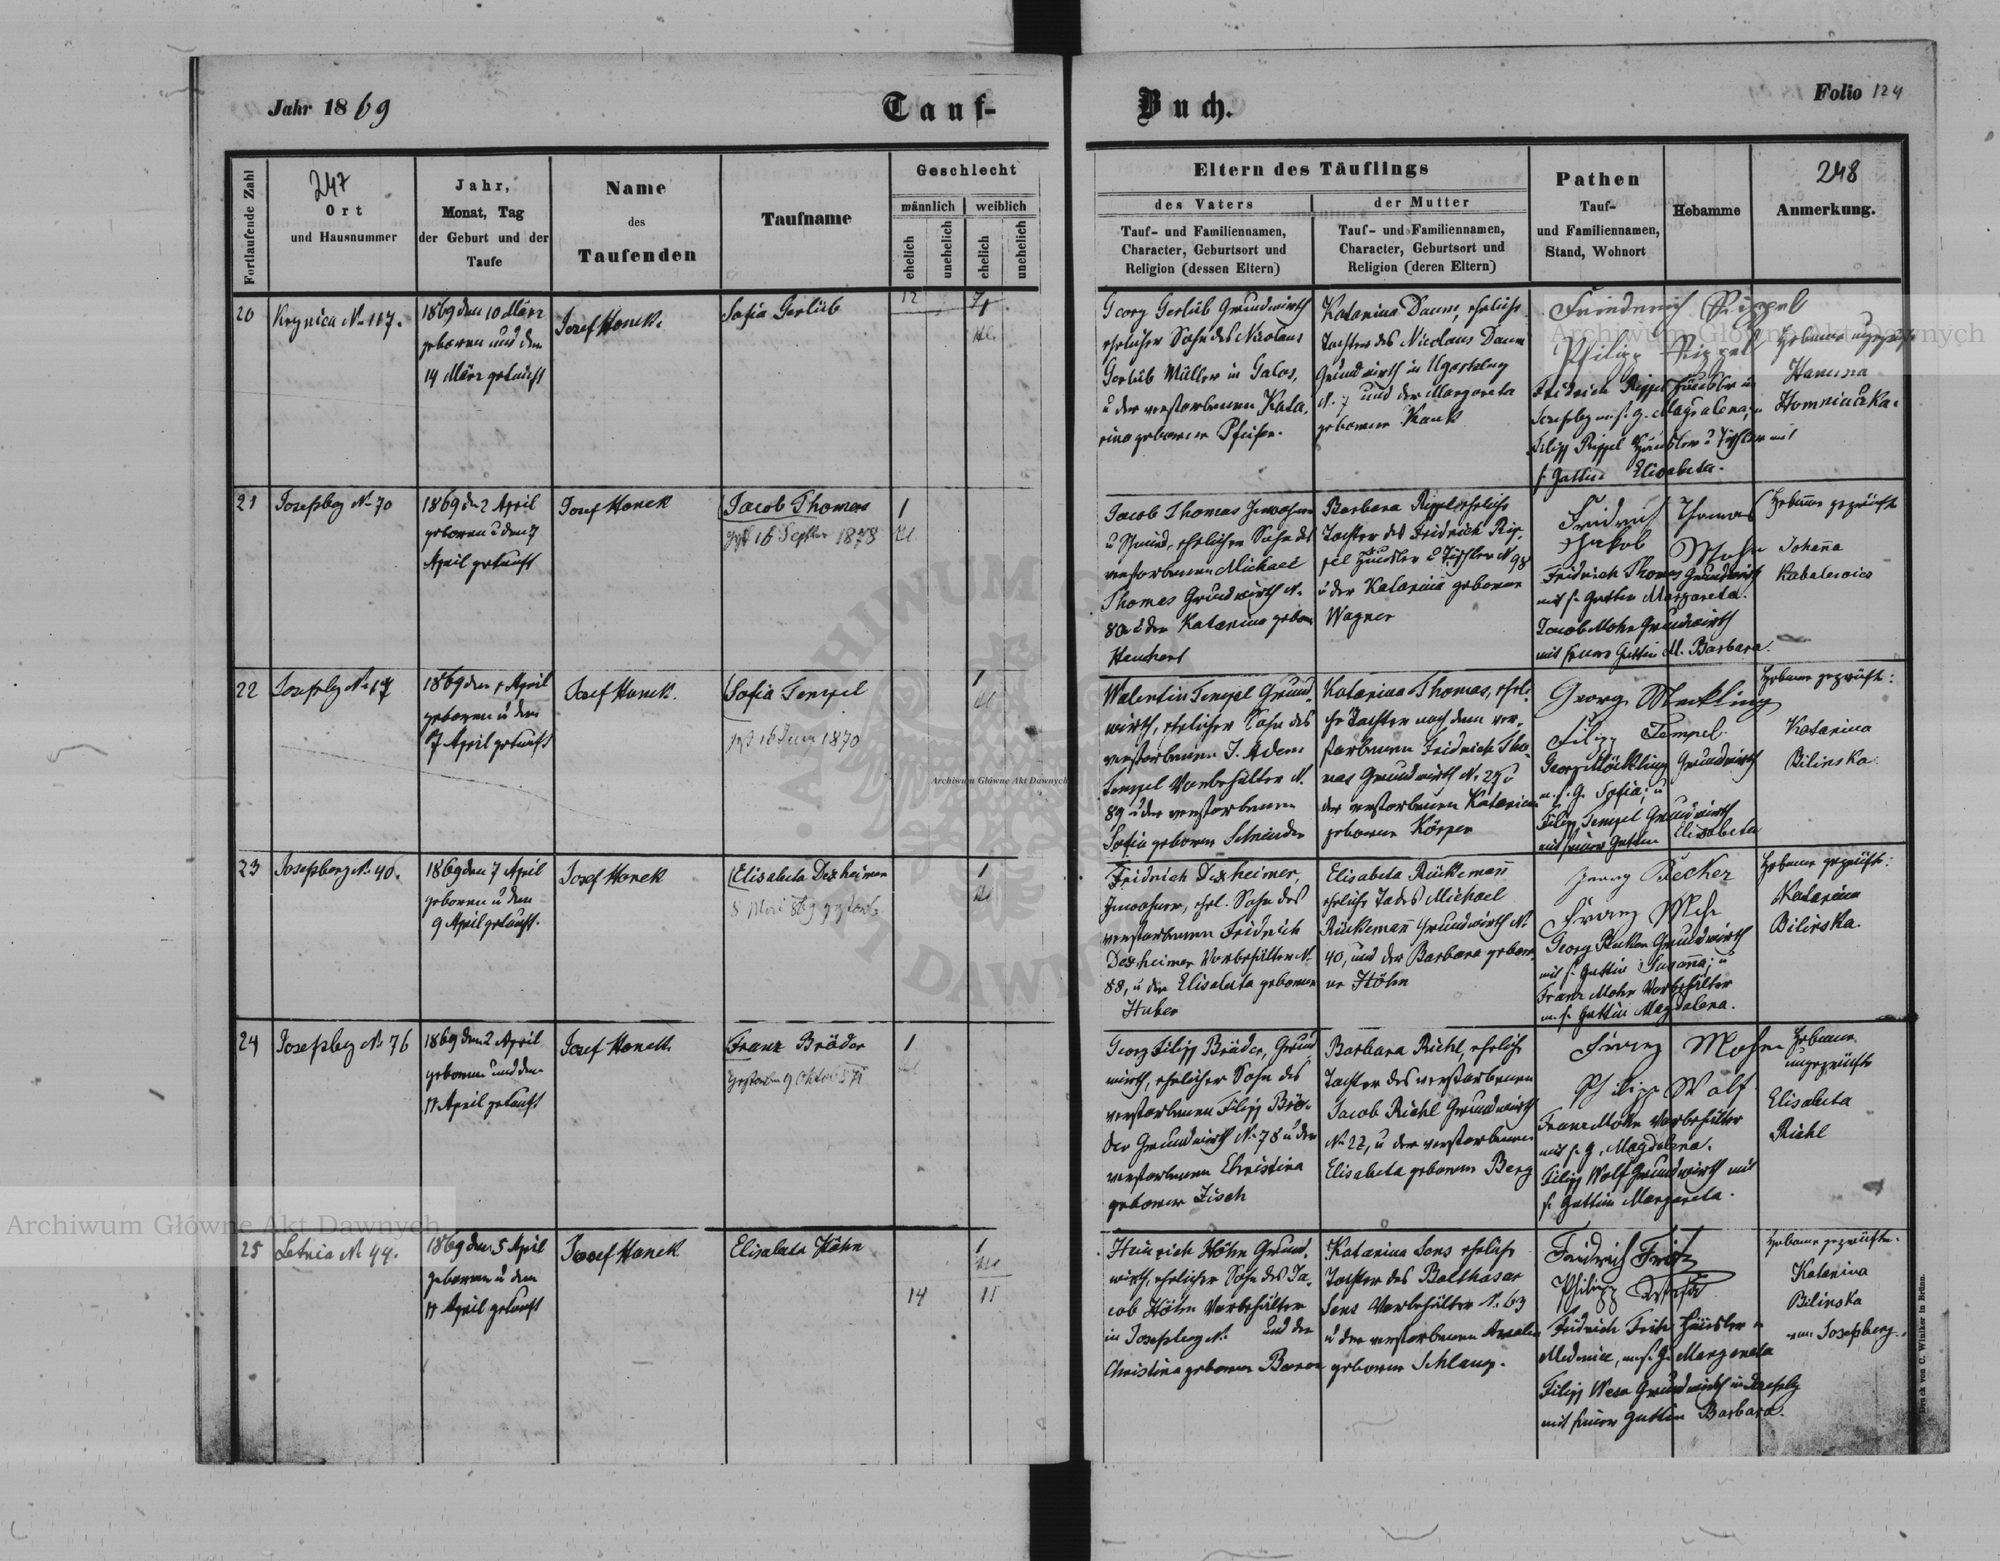 Jahr 1869
Tauf-
Buch.
Folio 124
Fortlaufende Zahl
247
Ort
und Hausnummer
Jahr,
Monat, Tag
der Geburt und der
Taufe
Name
des
Taufenden
Taufname
Geschlecht
männlich
weiblich
ehelich
unehelich
ehelich
unehelich
Eltern des Täuflings
des Vaters
Tauf- und Familiennamen,
Character, Geburtsort und
Religion (dessen Eltern)
der Mutter
Tauf- und Familiennamen,
Character, Geburtsort und
Religion (deren Eltern)
Pathen
Tauf-
und Familiennamen,
Stand, Wohnort
Hebamme
248
Anmerkung.
20
Krynica No 117.
1869 den 10 März
geboren und den
14 März getauft
Josef Honek.
Sofia Gerlüb
12
Georg Gerlüb Grundwirth
ehelicher Sohn des Nicolaus
Gerlüb Müller in
u der verstorbenen Kata,
rina geborene Pfeifer.
Katarina Daum, eheliche
Tochter des Nicolaus Daum
Grundwirth in Ugartsberg
N. 7 und der Margareta
geborene Kauk
Friedrich Rippel
Philipp Rippel
Fridrich Rippel Häusler in
Josefsbg m. s. g. Magdalena, u
Filipp Rippel Häusler u Tischler mit
s. Gattin Elisabeta.
Hebamme
Hanuna
Homniučka.
21
Josefsbg No 70
1869 den 2 April
geboren u den 7
April getauft
Josef Honek
Jacob Thomas
16 Septber 1878
1
Jacob Thomas Inwohner
u Schmied, ehelicher Sohn des
verstorbenen Michael
Thomas Grundwirth N.
80 u der Katarina gebore
Barbara Rippel eheliche
Tochter des Fridrich Rip,
pel Häusler u Tischler N 98
u der Katarina geborene
Wagner
Fridrich Thomas
Jakob Mohr
Fridrich Thomas Grundwirth
mit s. Gattin Margareta.
Jacob Mohr Grundwirth
mit seiner Gattin M. Barbara.
Hebamme geprüft
Johanna
Kobalewicz
22
Josefsbg No 17
1869 den 1 April
geboren u den
7 April getauft
Josef Honek.
Sofia Tempel
1870
1
Walentin Tempel Grund,
wirth, ehelicher Sohn des
verstorbenen J. Adam
Tempel Vorbehälter N.
89 u der verstorbenen
Sofia geborene Schneider
Katarina Thomas, eheli,
che Tochter nach dem ver,
storbenen Fridrich Tho,
mas Grundwirth N. 25 u
der verstorbenen Katarina
geborene Körper
Georg Meckling
Filipp Tempel
Georg Möckling Grundwirth
m. s. G. Sofia; u
Filipp Tempel Grundwirth
mit seiner Gattin Elisabeta
Hebamme geprüft:
Katarina
Bilinska.
23
Josefsberg N. 40.
1869 den 7 April
geboren u den
9 April getauft.
Josef Honek
Elisabeta Dexheimer
8 Mai 869 gestorb.
1
Fridrich Dexheimer,
Inwohner, ehel. Sohn des
verstorbenen Fridrich
Dexheimer Vorbehälter N.
88, u der Elisabeta geborene
Huber
Elisabeta Rückemann
eheliche To des Michael
Rückemann Grundwirth N.
40, und der Barbara gebore,
ne Höhn
Georg Becker
Franz Mohr
Georg Becker Grundwirth
mit s. Gattin Susanna; u
Franz Mohr Vorbehälter
m. s. Gattin Magdalena.
Hebamme geprüft:
Katarina
Bilinska.
24
Josefsbg No 76
1869 den 2 April
geboren und den
11 April getauft
Josef Honek.
Franz Bräder
gestorben 9 Oktob
1
Georg Filipp Bräder, Grund,
wirth, ehelicher Sohn des
verstorbenen Filipp Brä,
der Grundwirth No 78 u der
verstorbenen Christina
geborene Zisch
Barbara Riehl, eheliche
Tochter des verstorbenen
Jacob Riehl Grundwirth
No 22, u der verstorbenen
Elisabeta geborene Berg
Franz Mohr
Philipp Wolf
Franz Mohr Vorbehälter
mit s. g. Magdalena.
Filipp Wolf Grundwirth mit
s. Gattin Margareta.
Hebamme
ungeprüfte
Elisabeta
Riehl
25
Letnia No 44.
1869 den 5 April
geboren u den
11 April getauft
Josef Honek
Elisabeta Höhn
1
14
11
Heinrich Höhn Grund,
wirth, ehelicher Sohn des Ja,
cob Höhn Vorbehälter
in Josefsberg N. und der
Christina geborene Baron
Katarina Sens eheliche
Tochter des Balthasar
Sens Vorbehälter N. 63
u der verstorbenen
geborene Schlaug.
Fridrich Fritz
Philipp
Fridrich Fritz Häusler in
Medenice, m. s. g. Margareta
Filipp Grundwirth in Josefsbg
mit seiner Gattin Barbara.
Hebamme geprüfte.
Katarina
Bilinska
von Josefsberg.
Druck von C. Winiker in Brünn.
Archiwum Główne Akt Dawnych
Archiwum Główne Akt Dawnych
Archiwum Główne Akt Dawnych